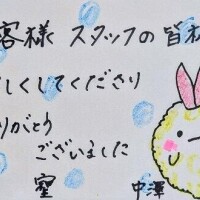 客様 スタッフの皆様
しくしてくださり
りがとう
ございました
室 中澤